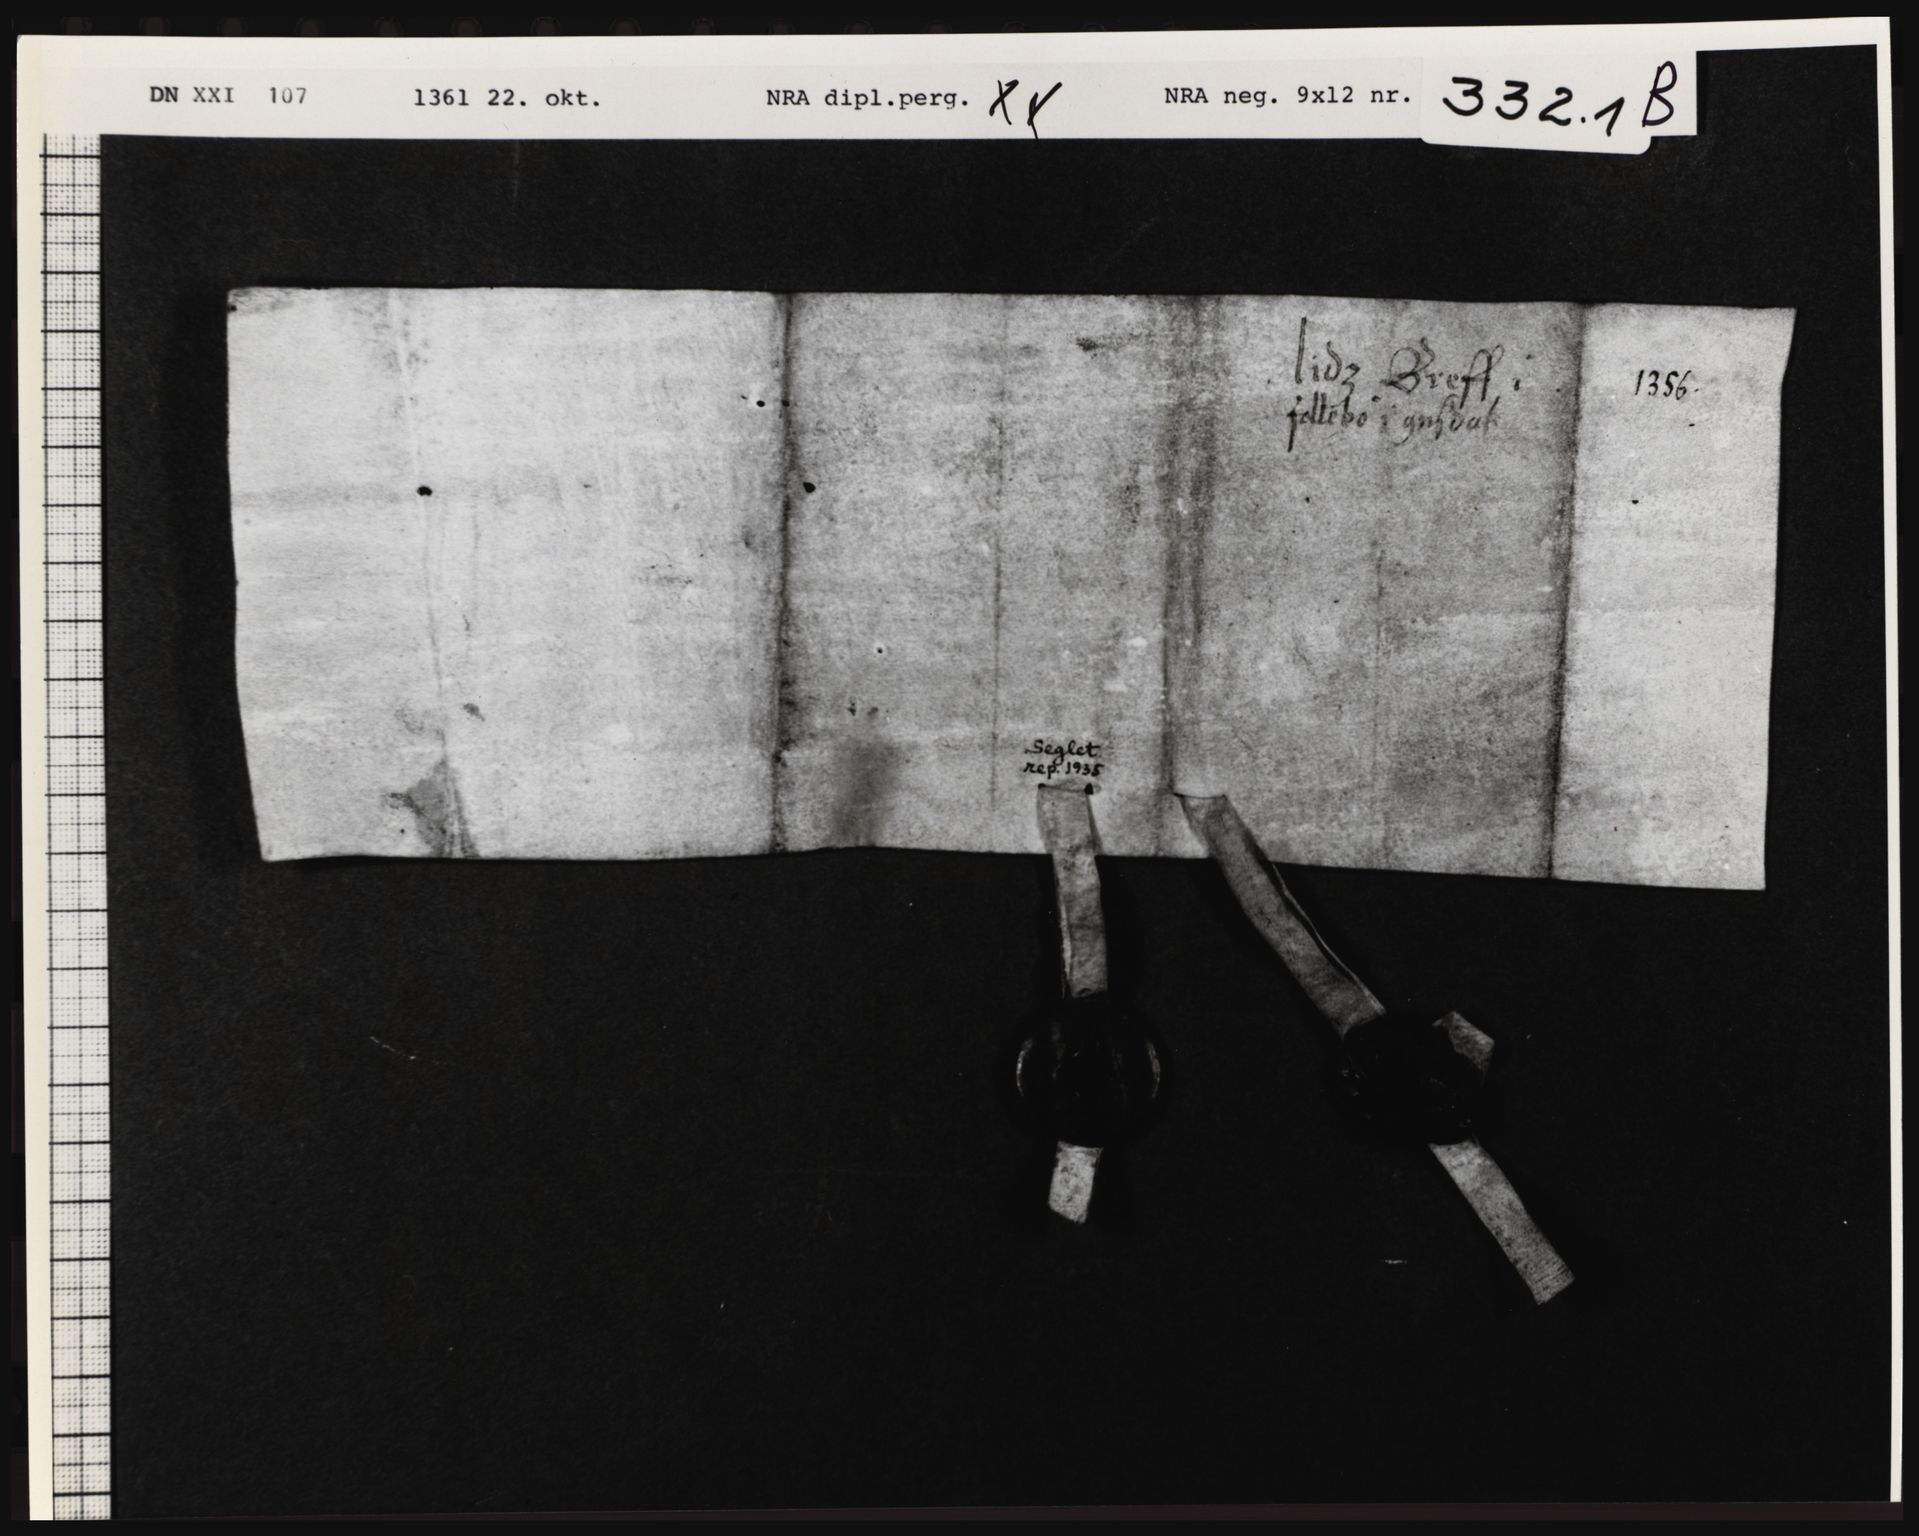 DN XXI 107 1361 22. okt. NRA dipl.perg. XX NRA neg. 9x12 nr. 332.1 B
lidz Breff i
1356.
i
Seglet
rep. 1935